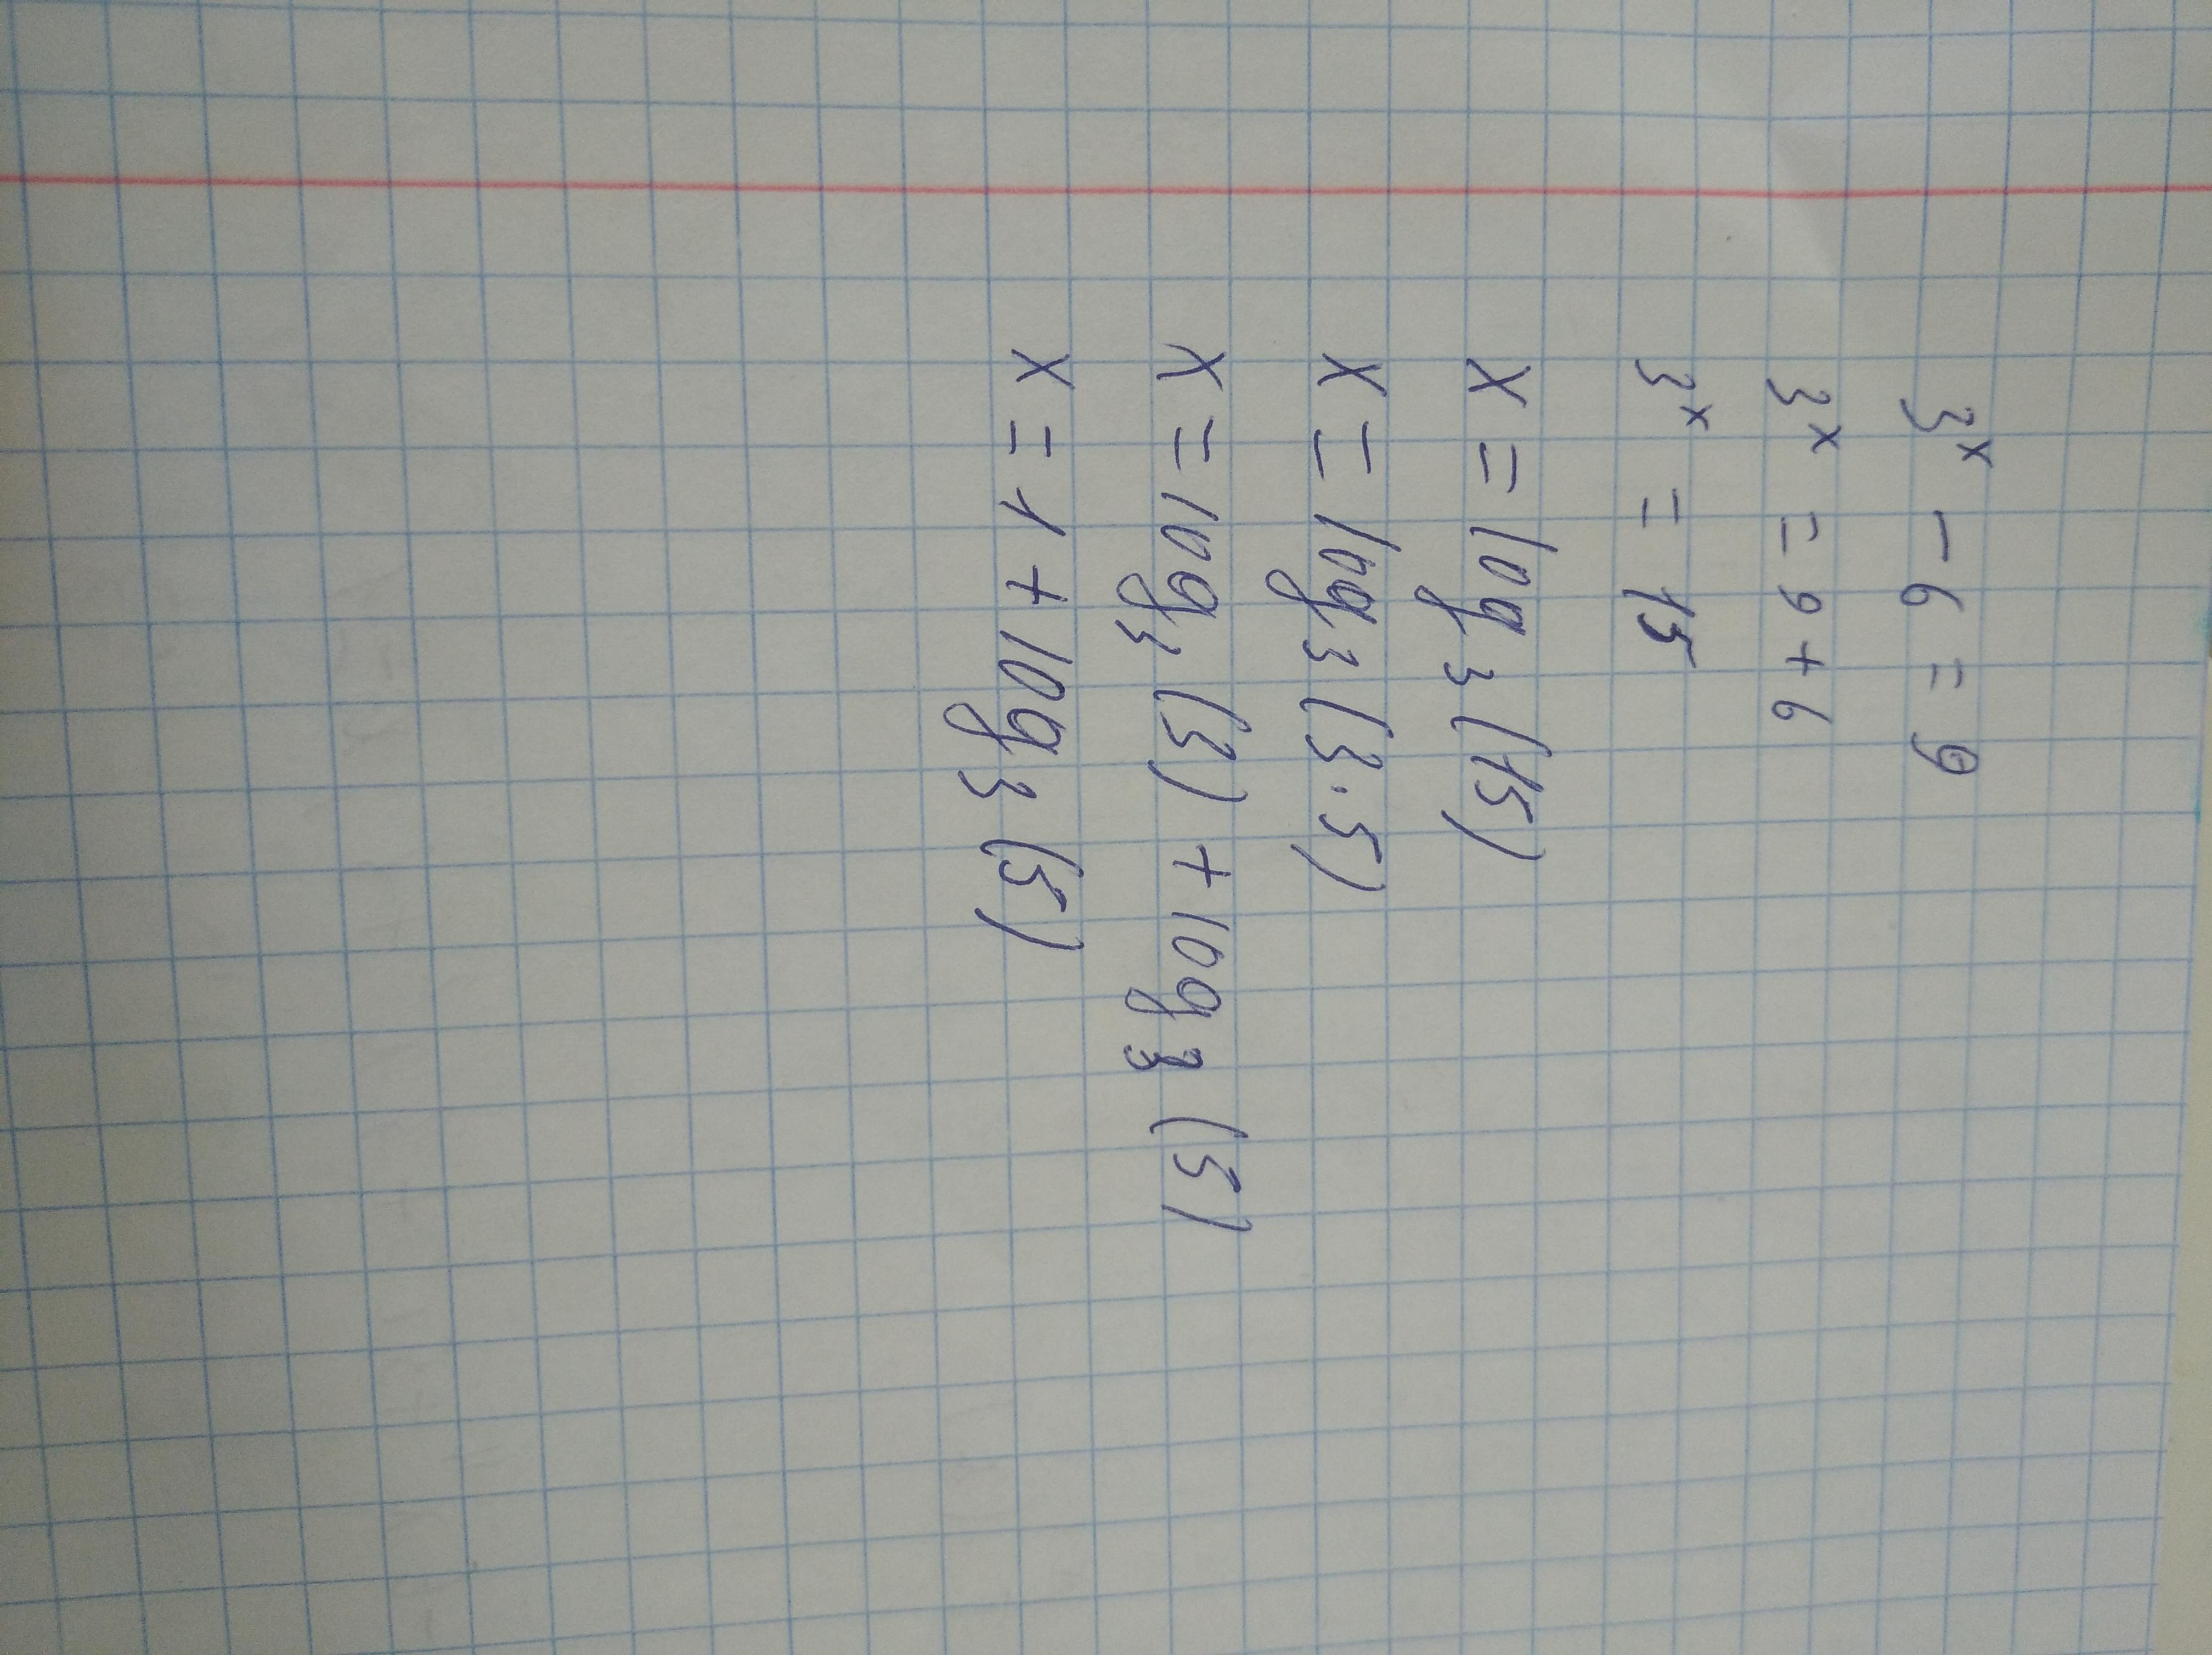 3ˣ - 6 = 9
3ˣ = 9 + 6
3ˣ = 15
x = log₃(15)
x = log₃(3·5)
x = log₃(3) + log₃(5)
x = 1 + log₃(5)